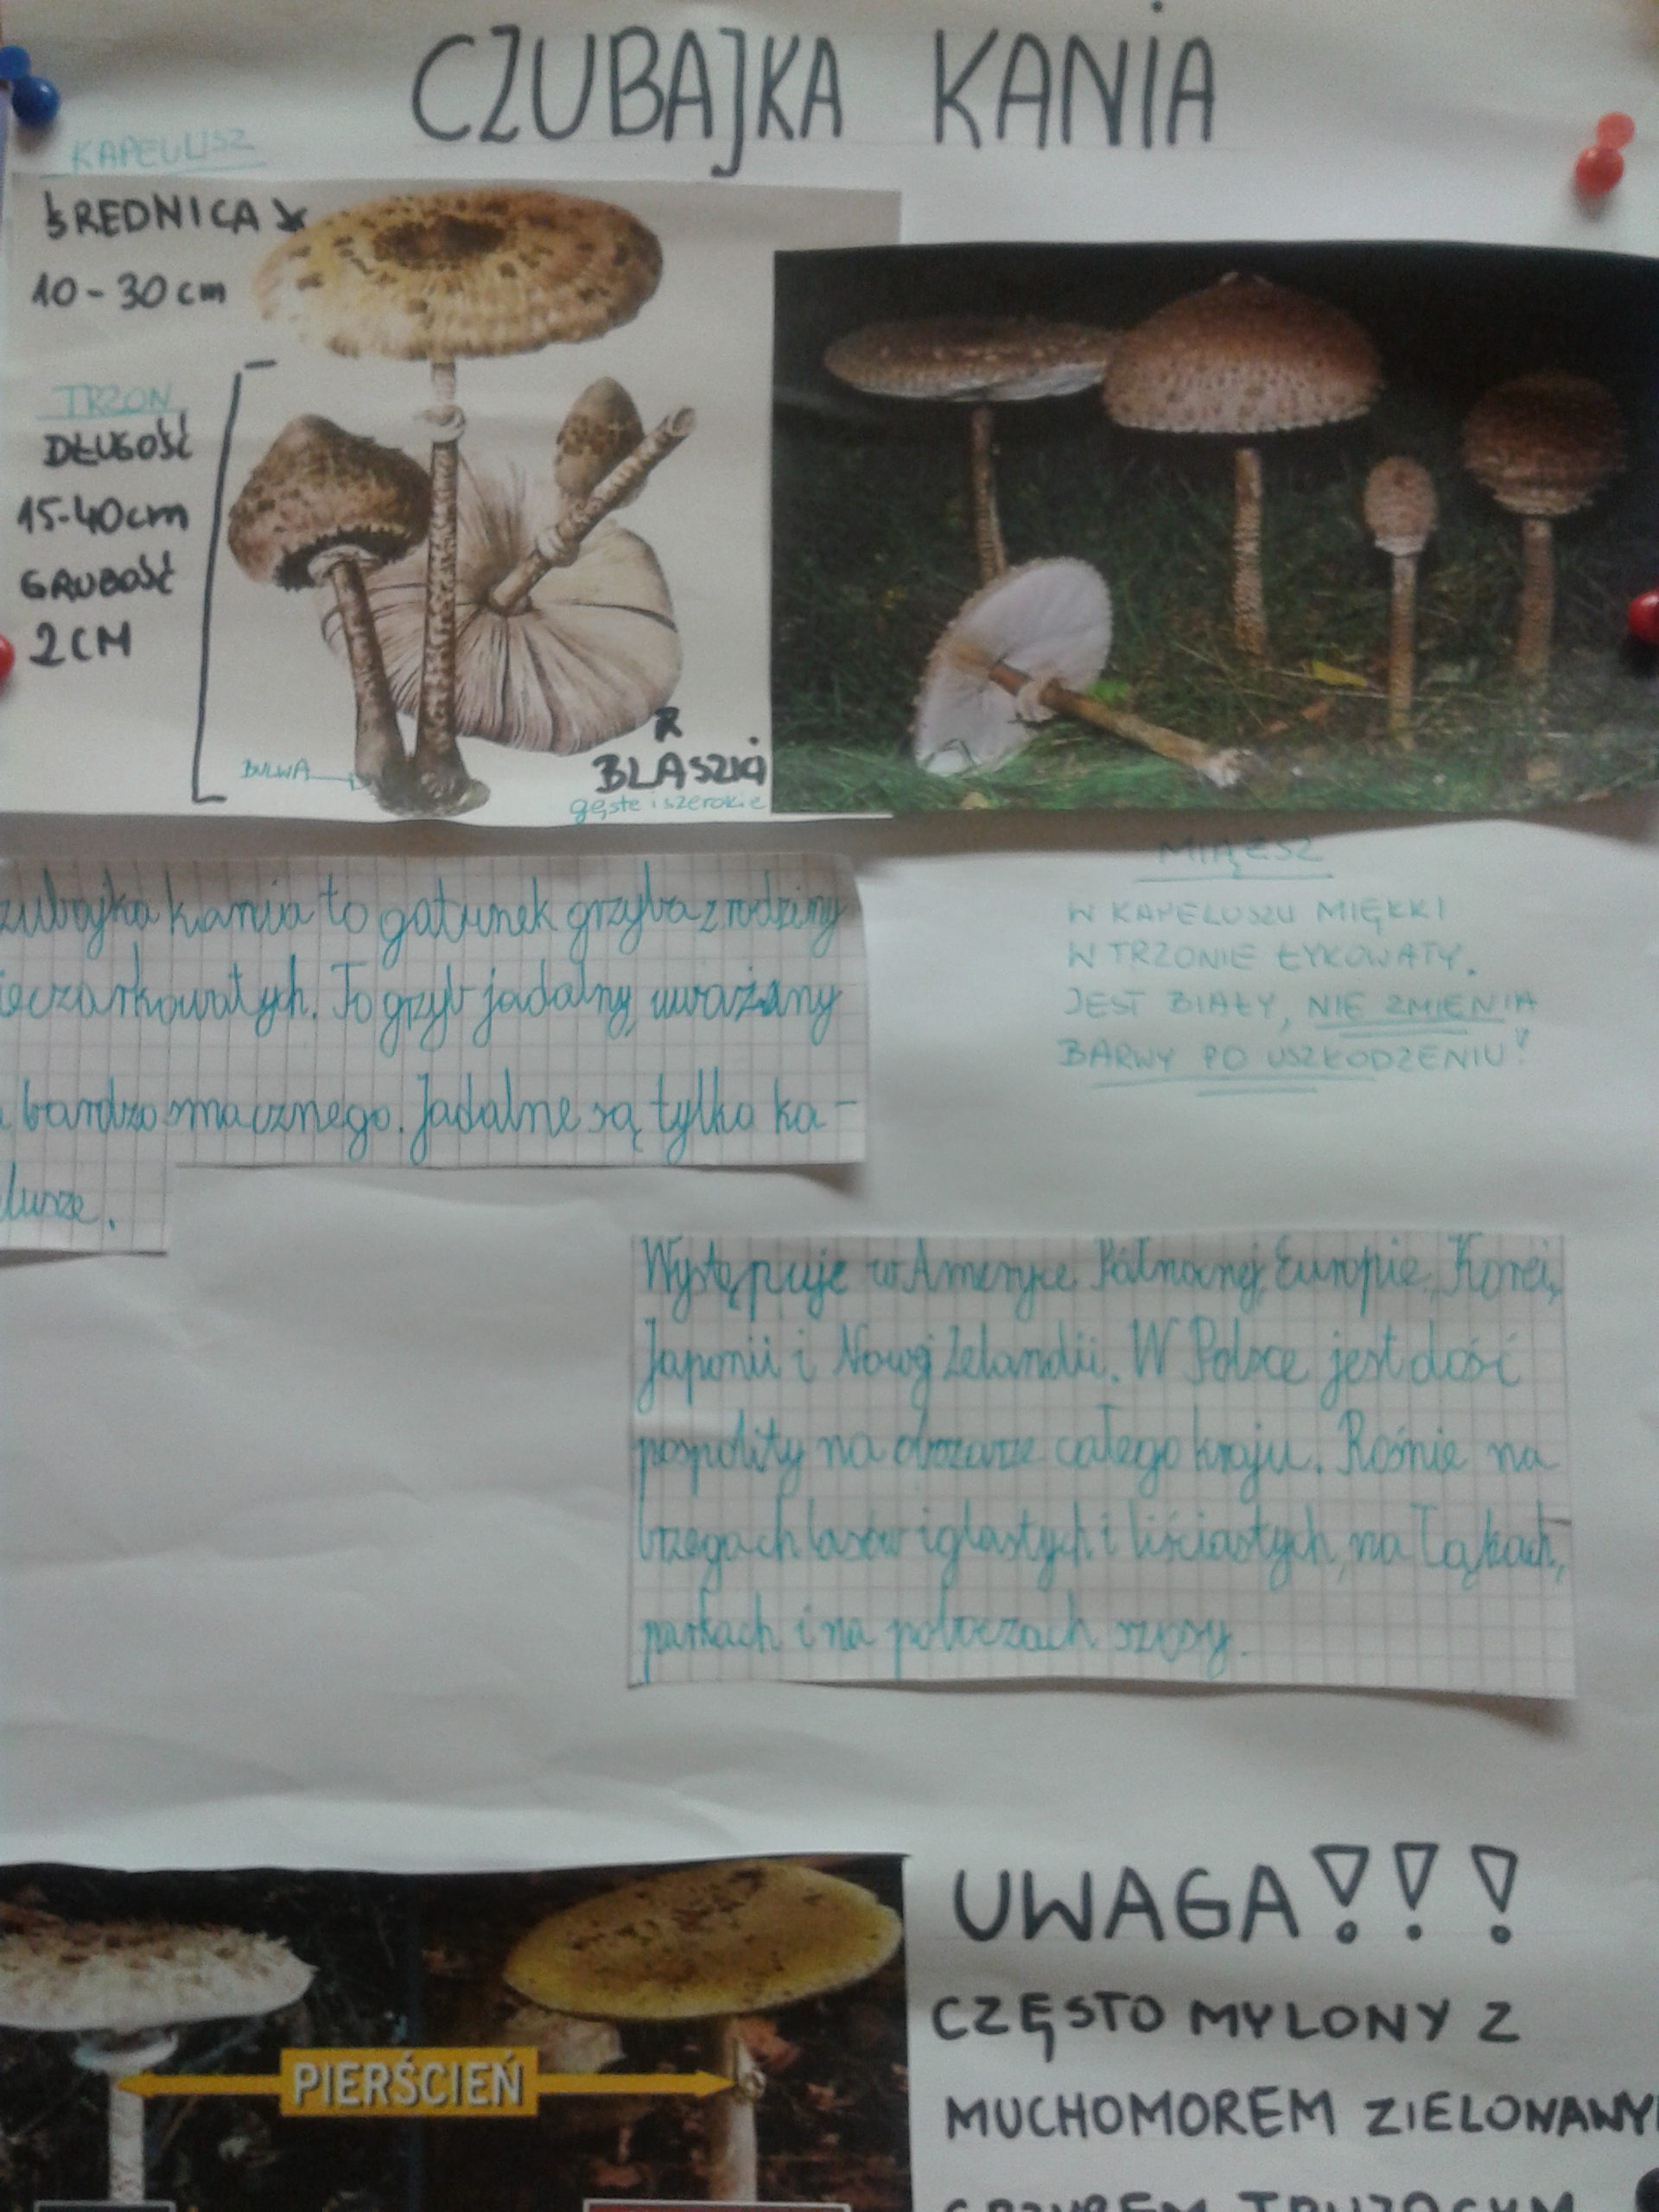 CZUBAJKA KANIA
KAPEULISZ
ŚREDNICA
10-30 cm
TRZON
DŁUGOŚĆ
15-40cm
GRUBOŚĆ
2CM
BULWA
BLASZKI
gęste i szerokie
zubajka kania to gatunek grzyba z rodziny
ieczarkowatych. To grzyb jadalny, uważany
a bardzo smacznego. Jadalne są tylko ka-
lusze.
MIĄŻSZ
W KAPELUSZU MIĘKKI
W TRZONIE ŁYKOWATY.
JEST BIAŁY, NIE ZMIENIA
BARWY PO USZKODZENIU!
Występuje w Ameryce Północnej, Europie, Korei,
Japonii i Nowej Zelandii. W Polsce jest dość
pospolity na obszarze całego kraju. Rośnie na
brzegach lasów iglastych i liściastych, na Łąkach,
parkach i na poboczach szosy.
UWAGA!!!
CZĘSTO MYLONY Z
MUCHOMOREM ZIELONAWY
PIERŚCIEŃ